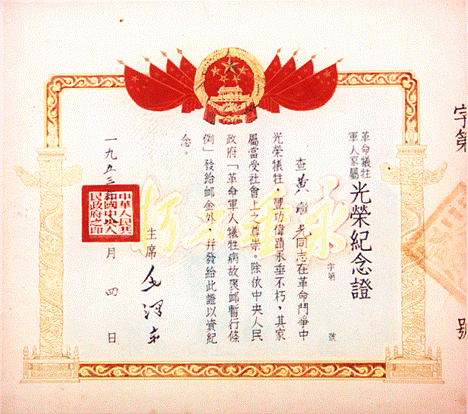 字第 號
革命犧牲
軍人家屬
光榮紀念證
字第 號
查黃繼光同志在革命鬥爭中
光榮犧牲，豐功偉蹟永垂不朽，其家
屬當受社會上之尊崇。除依中央人民
政府「革命軍人犧牲病故褒卹暫行條
例」發給卹金外，并發給此證以資紀
念。
主席 毛澤東
中華人民共
和國中央人
民政府之印
一九五三 月四日